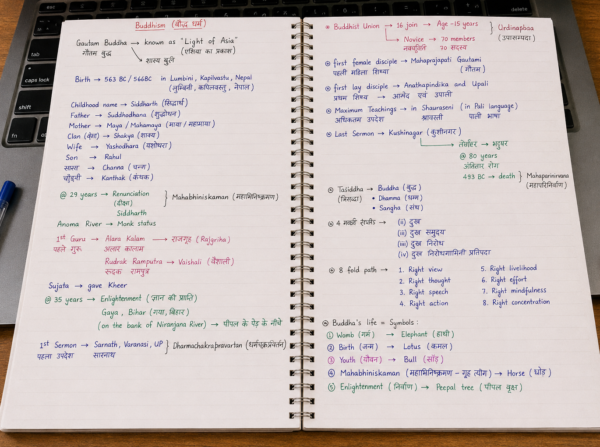 Buddhism (बौद्ध धर्म)
Gautam Buddha → known as "Light of Asia"
गौतम बुद्ध (एशिया का प्रकाश)
शाक्य
Birth → 563 BC / 566BC in Lumbini, Kapilvastu, Nepal
(लुम्बिनी, कपिलवस्तु, नेपाल)
Childhood name → Siddharth (सिद्धार्थ)
Father → Suddhodhana (शुद्धोधन)
Mother → Maya / Mahamaya (माया / महामाया)
Clan → Shakya (शाक्य)
Wife → Yashodhara (यशोधरा)
Son → Rahul
→ Channa
→ Kanthak (कंथक)
@ 29 years → Renunciation } Mahabhiniskaman (महाभिनिष्क्रमण)
Siddharth
Anoma River → Monk status
1st Guru → Alara Kalam → राजगृह (Rajgriha)
पहले गुरू अलार कालाम
Rudrak Ramputra → Vaishali (वैशाली)
रूदक रामपुत्र
Sujata → gave Kheer
@ 35 years → Enlightenment (ज्ञान की प्राप्ति)
Gaya, Bihar (गया, बिहार)
(on the bank of Niranjana River) → पीपल के पेड़ के नीचे
1st Sermon → Sarnath, Varanasi, UP } Dharmachakrapravartan
पहला उपदेश सारनाथ
Buddhist Union → 16 join → Age -15 years } Ordinapbaa
Novice → 70 members (उपासम्पदा)
70 सदस्य
first female disciple → Mahaprajapati Gautami
पहली महिला शिष्या (गौतम)
first lay disciple → Anathapindika and Upali
प्रथम शिष्य → आनंद एवं उपाली
Maximum Teachings → in Shauraseni (in Pali language)
अधिकतम उपदेश श्रावस्ती पाली भाषा
Last Sermon → Kushinagar (कुशीनगर)
@ 80 years
493 BC → death } Mahaparinirvana
(महापरिनिर्वाण)
→ Buddha (बुद्ध)
• Dhanna (धम्म)
• Sangha (संघ)
4 → (ii) दुख
(ii) दुख समुदय
(iii) दुख निरोध
(iv) दुख निरोधगामिनी प्रतिपदा
8 fold path → 1. Right view 5. Right livelihood
2. Right thought 6. Right effort
3. Right speech 7. Right mindfulness
4. Right action 8. Right concentration
Buddha's life = Symbols :
① Womb (गर्भ) → Elephant (हाथी)
② Birth (जन्म) → Lotus (कमल)
③ Youth (यौवन) → Bull (सांड़)
④ Mahabhiniskaman (महाभिनिष्क्रमण – गृह) → Horse
⑤ Enlightenment (निर्वाण) → Peepal tree (पीपल वृक्ष)
caps lock